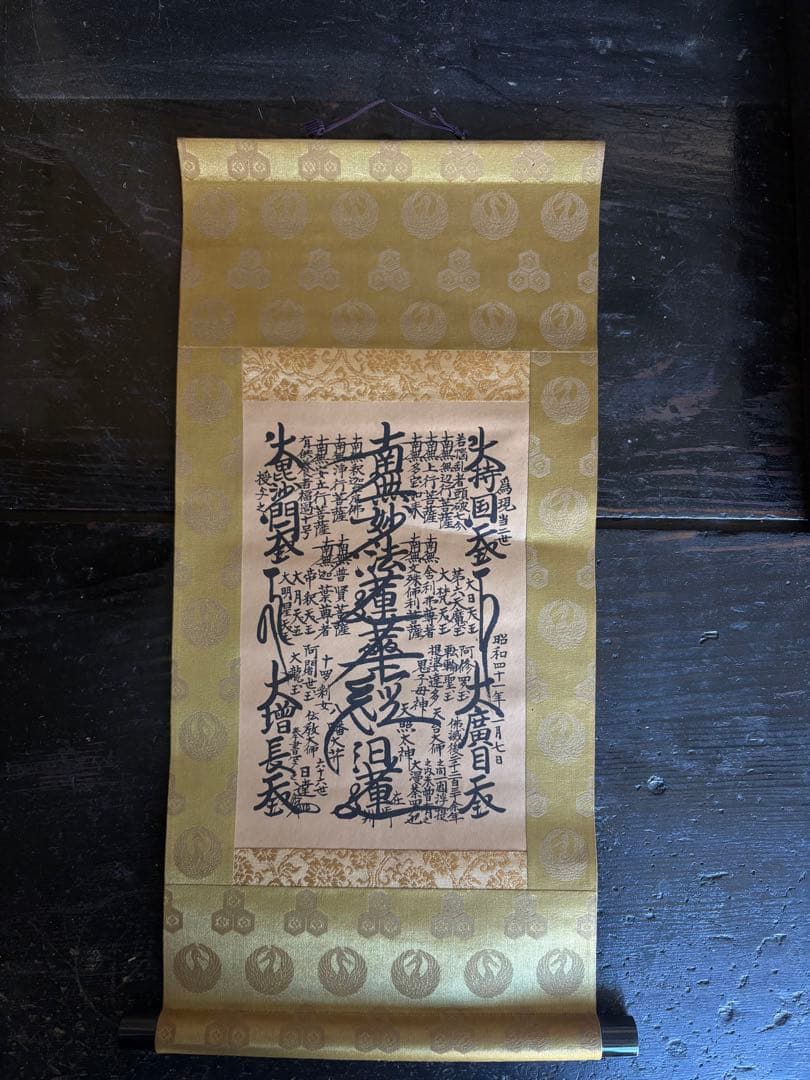 為現当二世
大持国天王
大廣目天王
昭和四十一年一月七日
若悩乱者頭破七分
南無無辺行菩薩
南無上行菩薩
南無多宝如来
南無妙法蓮華経
日蓮
在御判
南無釈迦牟尼佛
南無浄行菩薩
南無安立行菩薩
有供養者福過十号
大毘沙門天王
授与之
大増長天王
大日天王
第六天魔王
大梵天王
南無舎利弗尊者
南無文殊師利菩薩
南無普賢菩薩
南無迦葉尊者
帝釈天王
大月天王
大明星天王
阿修羅王
転輪聖王
提婆達多
鬼子母神
十羅刹女
阿闍世王
大龍王
佛滅後二千二百三十余年
之間一閻浮提
之内未曾有之
大漫荼羅也
天台大師
天照大神
八幡大菩薩
伝教大師
六十六世
日達
奉書写之